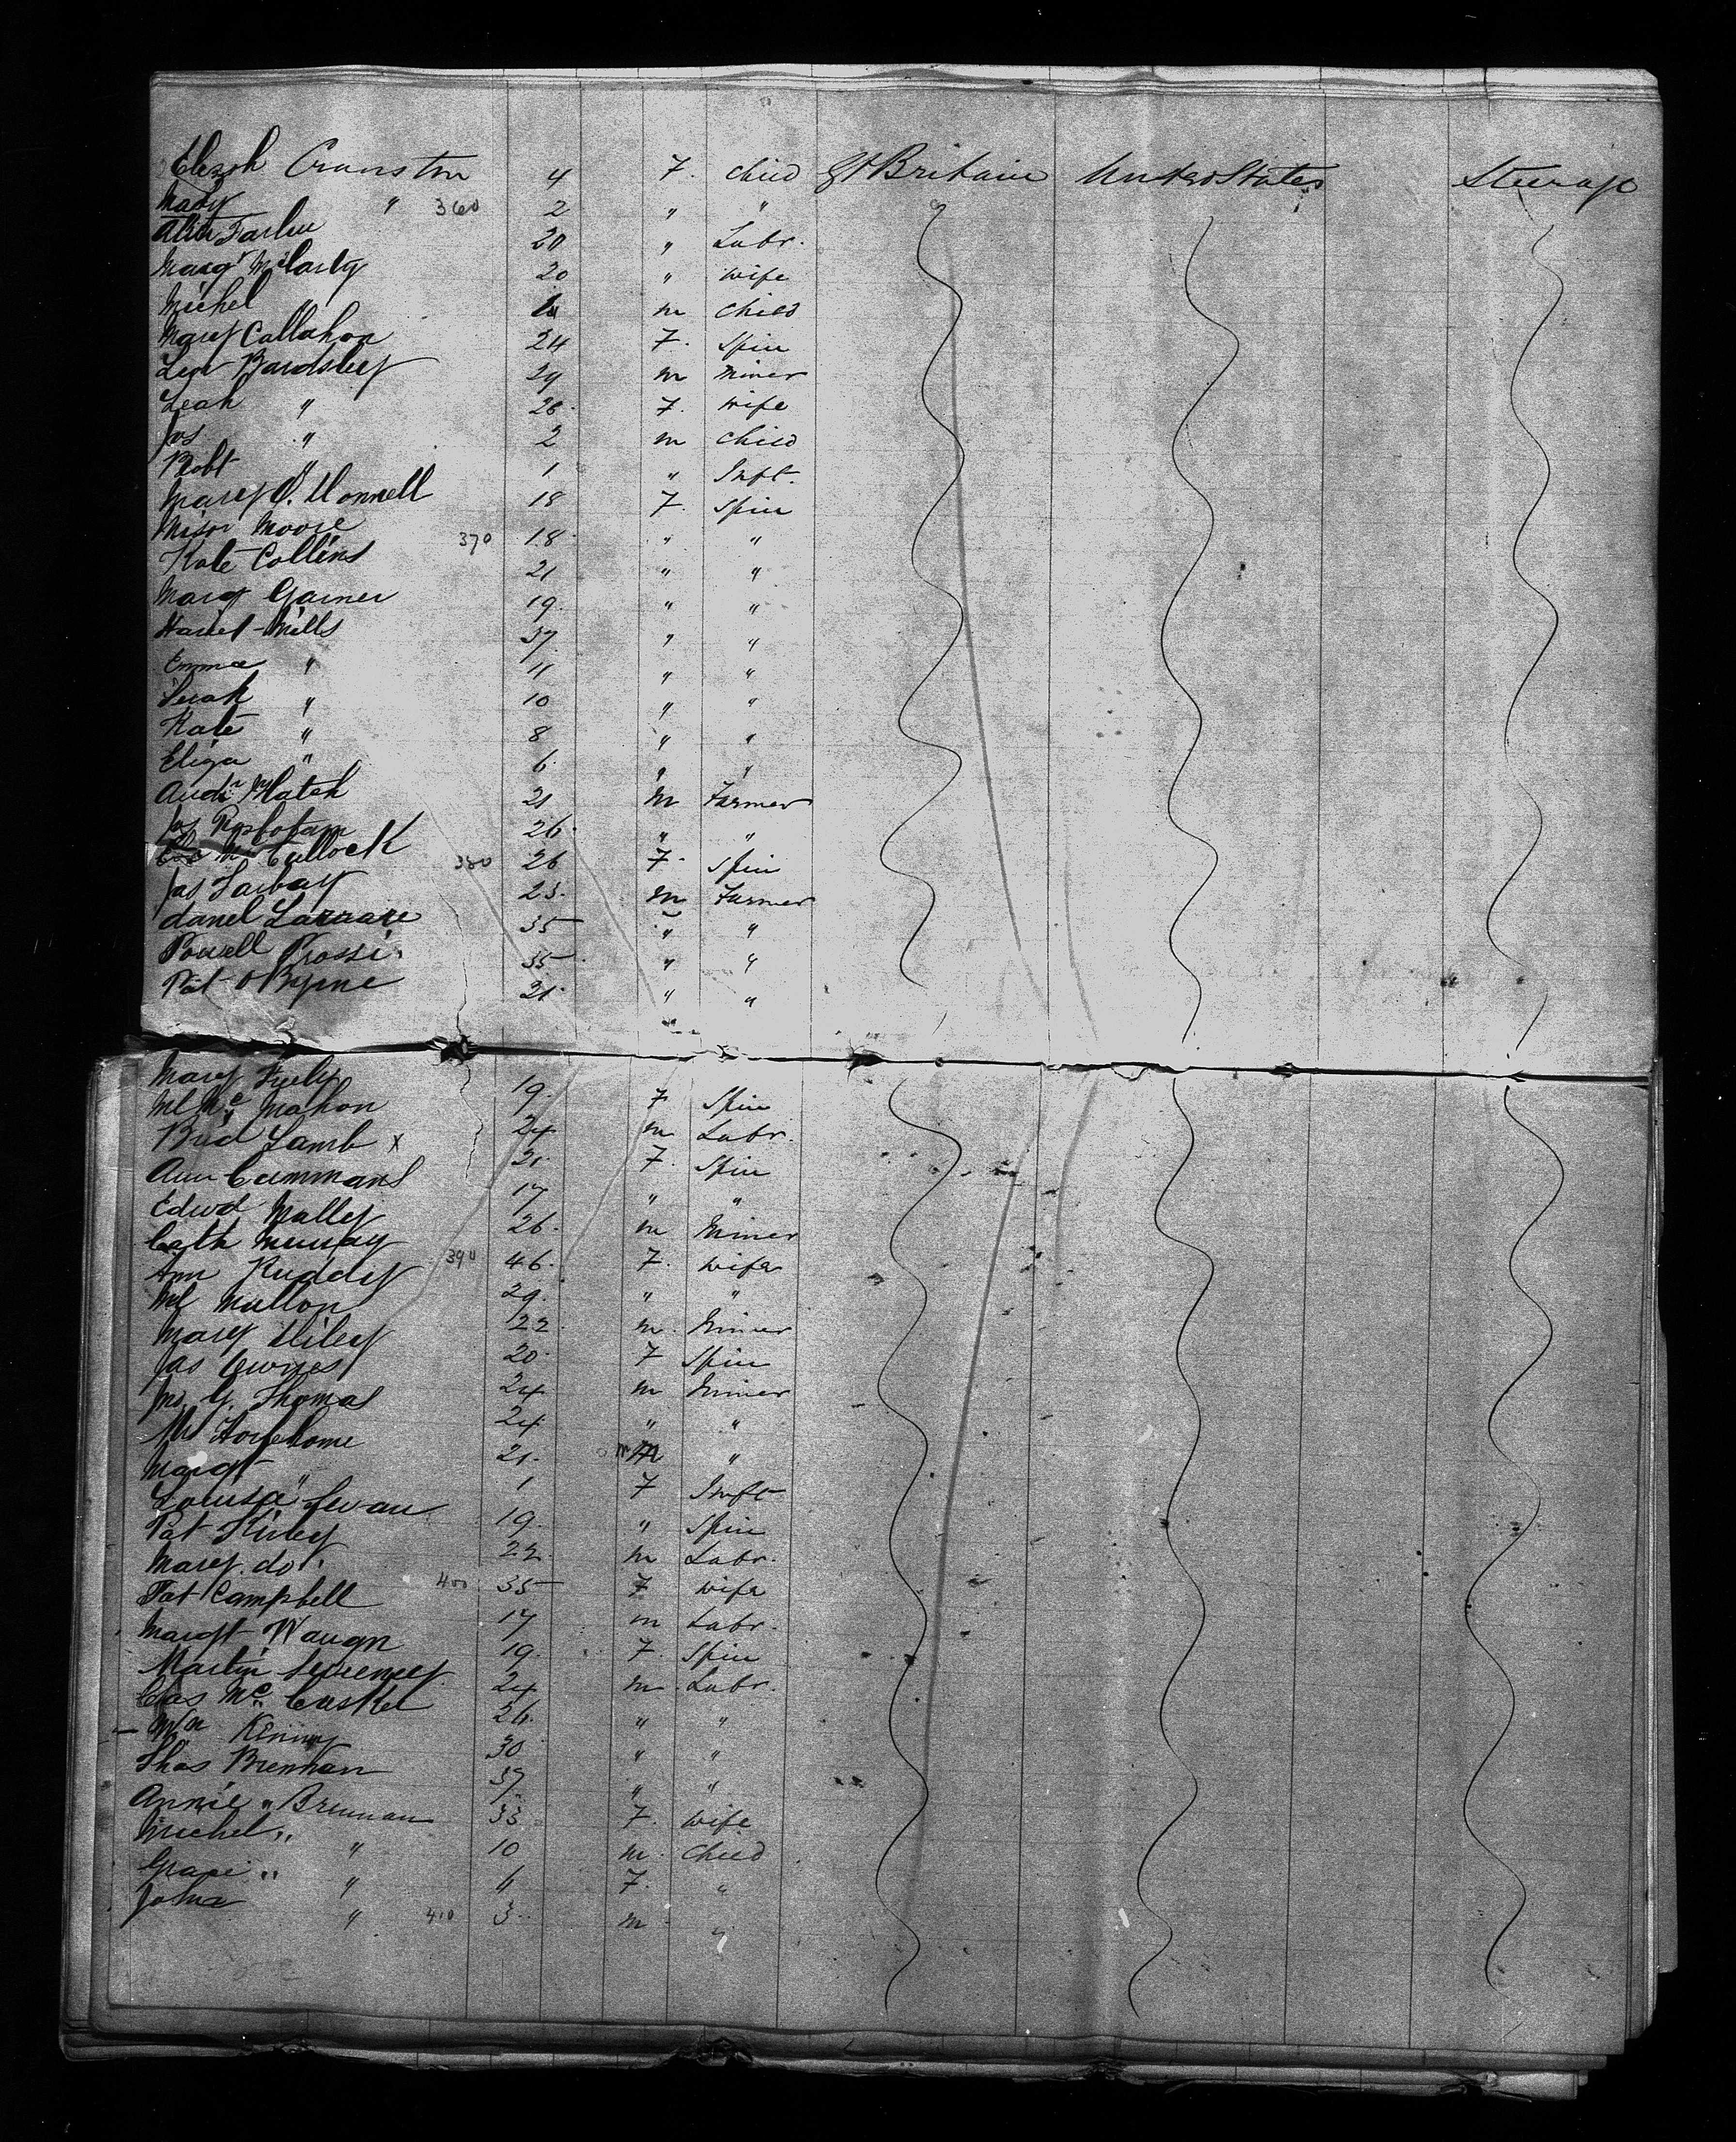 Elizah Cranston 4 F. Child Gt Britain United States Steerage
Mary " 360 2 " "
Farlen 20 " Labr.
Margt McCarty 20 " wife
Michel " m Child
Mary Callahan 24 F. Spin
Levi Bardsley 29 m Miner
Leah " 26 F. wife
Jos " 2 m Child
Robt " 1 " Inft.
Mary O. Donnell 18 F. Spin
Moore 370 18 " "
Kate Collins 21 " "
Marg Garner 19 " "
Harriet Mills 37 " "
Emma " 11 " "
Sarah " 10 " "
Kate " 8 " "
Eliza " 6 " "
Andw 21 m Farmer
Jas 26 " "
McCullock 380 26 F. Spin
Jas Tarbay 23 m Farmer
Danel Lazzare 35 " "
Powell Rossi 35 " "
Pat O Byrne 21 " "
Mary Feely 19 F Spin
Ml Mc Mahon 24 m Labr.
Brid Lamb x 21 F. Spin
Ann Cummans 17 " "
Edwd Malley 26 m Miner
Cath Murray 390 46 F. wife
Ann Ruddy 29 " "
Ml Mallon 22 m. Miner
Mary Diley 20 F Spin
Jas 24 m Miner
Jno. G. Thomas 24 " "
Wm Horsehome 21 m "
Margt " 1 F Inft
Louisa Swan 19 " Spin
Pat Kirley 22 m Labr.
Mary do 400 35 F wife
Pat Campbell 17 m Labr.
Margt Waugn 19 F. Spin
Martin Sweeney 24 m Labr.
Chas Mc Caskel 26 " "
Wm Kenny 30 " "
Thos Brennan 37 " "
Annie " Brennan 33 F. wife
Michel " " 10 m. Child
Grace " " F. "
Johna " 410 3 m "